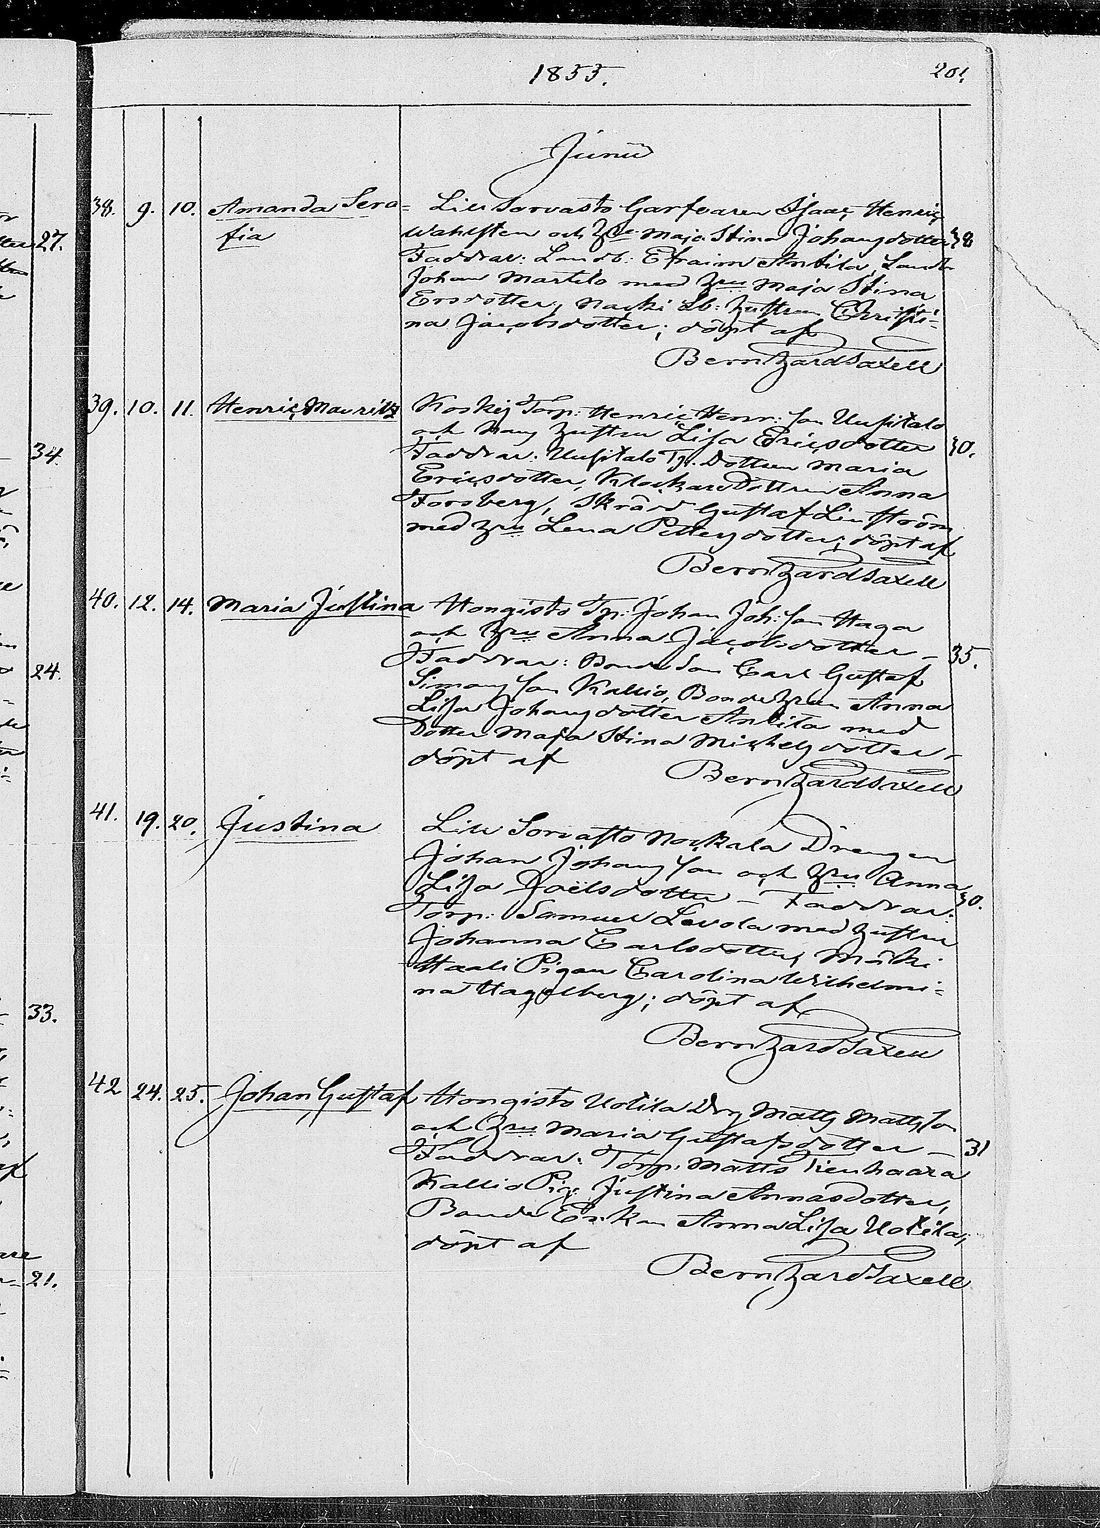 1853.
201.
Junii
38. 9. 10. Amanda Sera=
fia
Lill Sorvasto Garfvaren Isaac Henric
Wahlsten och Hu Maja Stina Johansdotter 38
Faddrar: Landb: Efraim Anttila, Landb:
Johan Martelo med Hu Maja Stina
Ersdotter, Hustrun Christi=
na Jacobsdotter; döpt af
Bernhard Saxell
39. 10. 11. Henric Mauritz
Koskis Torp. Henric Henr: son Uusitalo
och hans hustru Lisa Ericsdotter 30.
Faddrar: Uusitalo Tp. Dottren Maria
Ericsdotter, Klockare Dottren Anna
Forsberg, Skrädd Gustaf Lindström
med Hu Lena Pettersdotter; döpt af
Bernhard Saxell
40. 12. 14. Maria Justina
Hongisto Tp: Johan Joh: son Haga
och Hu Anna Jacobsdotter – 35.
Faddrar: Bonde Son Carl Gustaf
Simons son Kallio, Bonde Hun Anna
Lisa Johansdotter Anttila med
Dotter Maja Stina Michelsdotter –
döpt af
Bernhard Saxell
41. 19. 20. Justina
Lill Sorvasto Nockala Drengen
Johan Johans son och Hu Anna
Lisa Joëlsdotter – Faddrar: 30.
Torp: Samuel Levola med hustru
Johanna Carlsdotter, Mäki
Haali Pigan Carolina Wilhelmi=
na Hagelberg; döpt af
Bernhard Saxell
42 24. 25. Johan Gustaf
Hongisto Uotila Drg Matts Matts son
och Hu Maria Gustafsdotter – 31
Faddrar: Torp. Matts Tienhaara
Kallio Pig: Justina Annasdotter,
Bonde Enkan Anna Lisa Uotila;
döpt af
Bernhard Saxell
27.
34.
24.
33.
21.